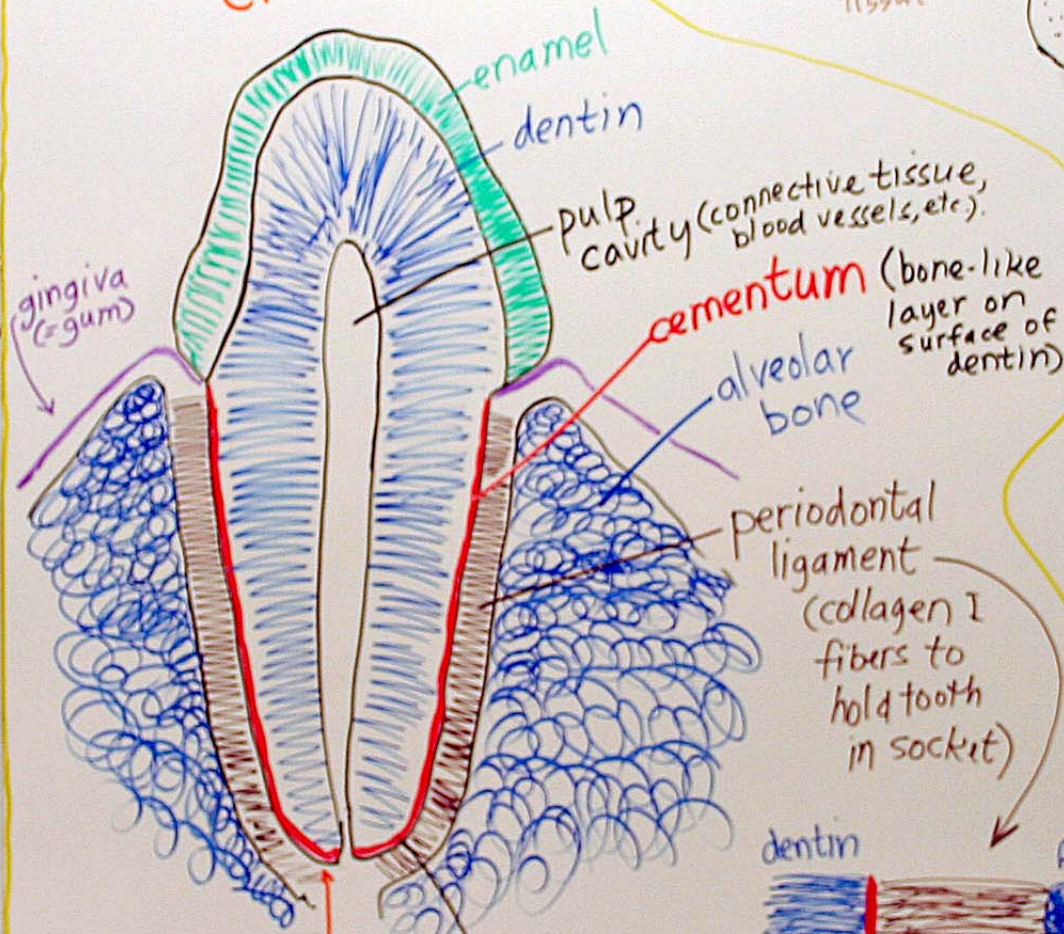 enamel
dentin
pulp
cavity (connective tissue,
blood vessels, etc).
gingiva
(=gum)
cementum (bone-like
layer on
surface of
dentin)
alveolar
bone
periodontal
ligament
(collagen I
fibers to
hold tooth
in socket)
dentin